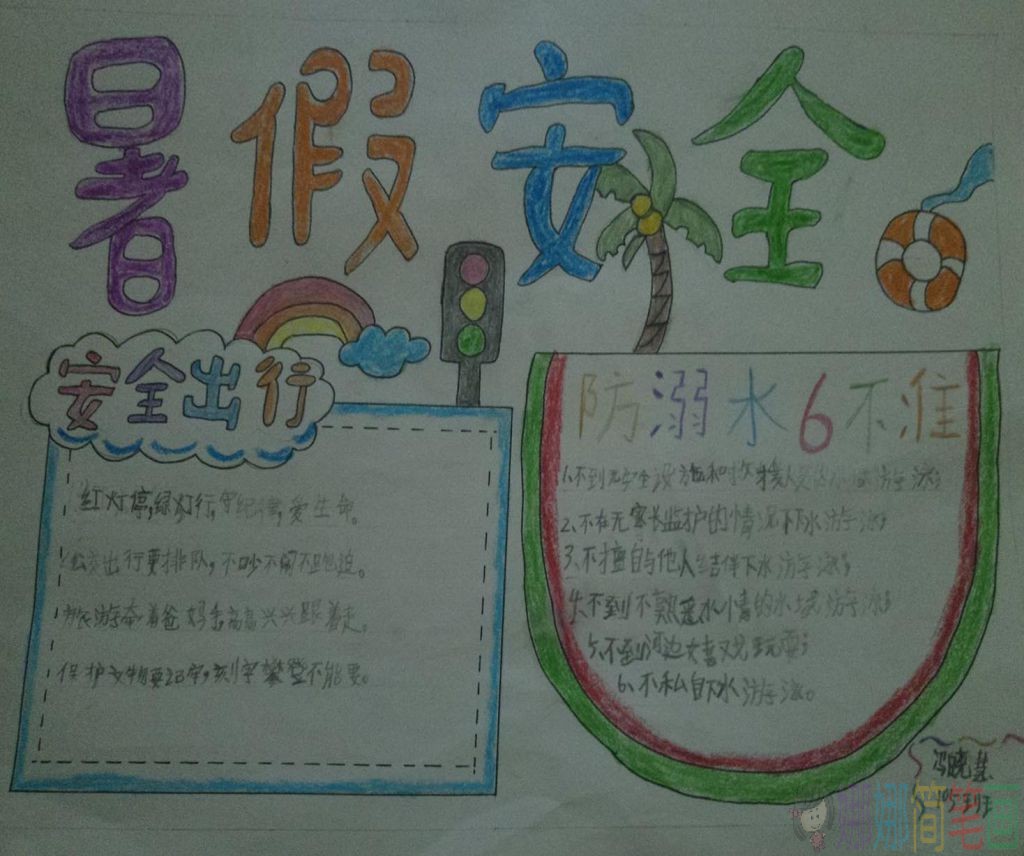 暑假安全
安全出行
红灯停,绿灯行,守纪律,爱生命。
公交出行要排队,不吵不闹不追。
旅游牵着爸妈手高高兴兴跟着走。
保护文物要牢,刻字攀登不能要。
防溺水6不准
1.不到无安全设施和救援人员的水域游泳;
2.不在无家长监护的情况下下水游泳;
3.不擅自与他人结伴下水游泳;
4.不到不熟悉水情的水域游泳;
5.不到河边去嬉戏玩耍;
6.不私自下水游泳。
冯晓
105班
娜简笔画